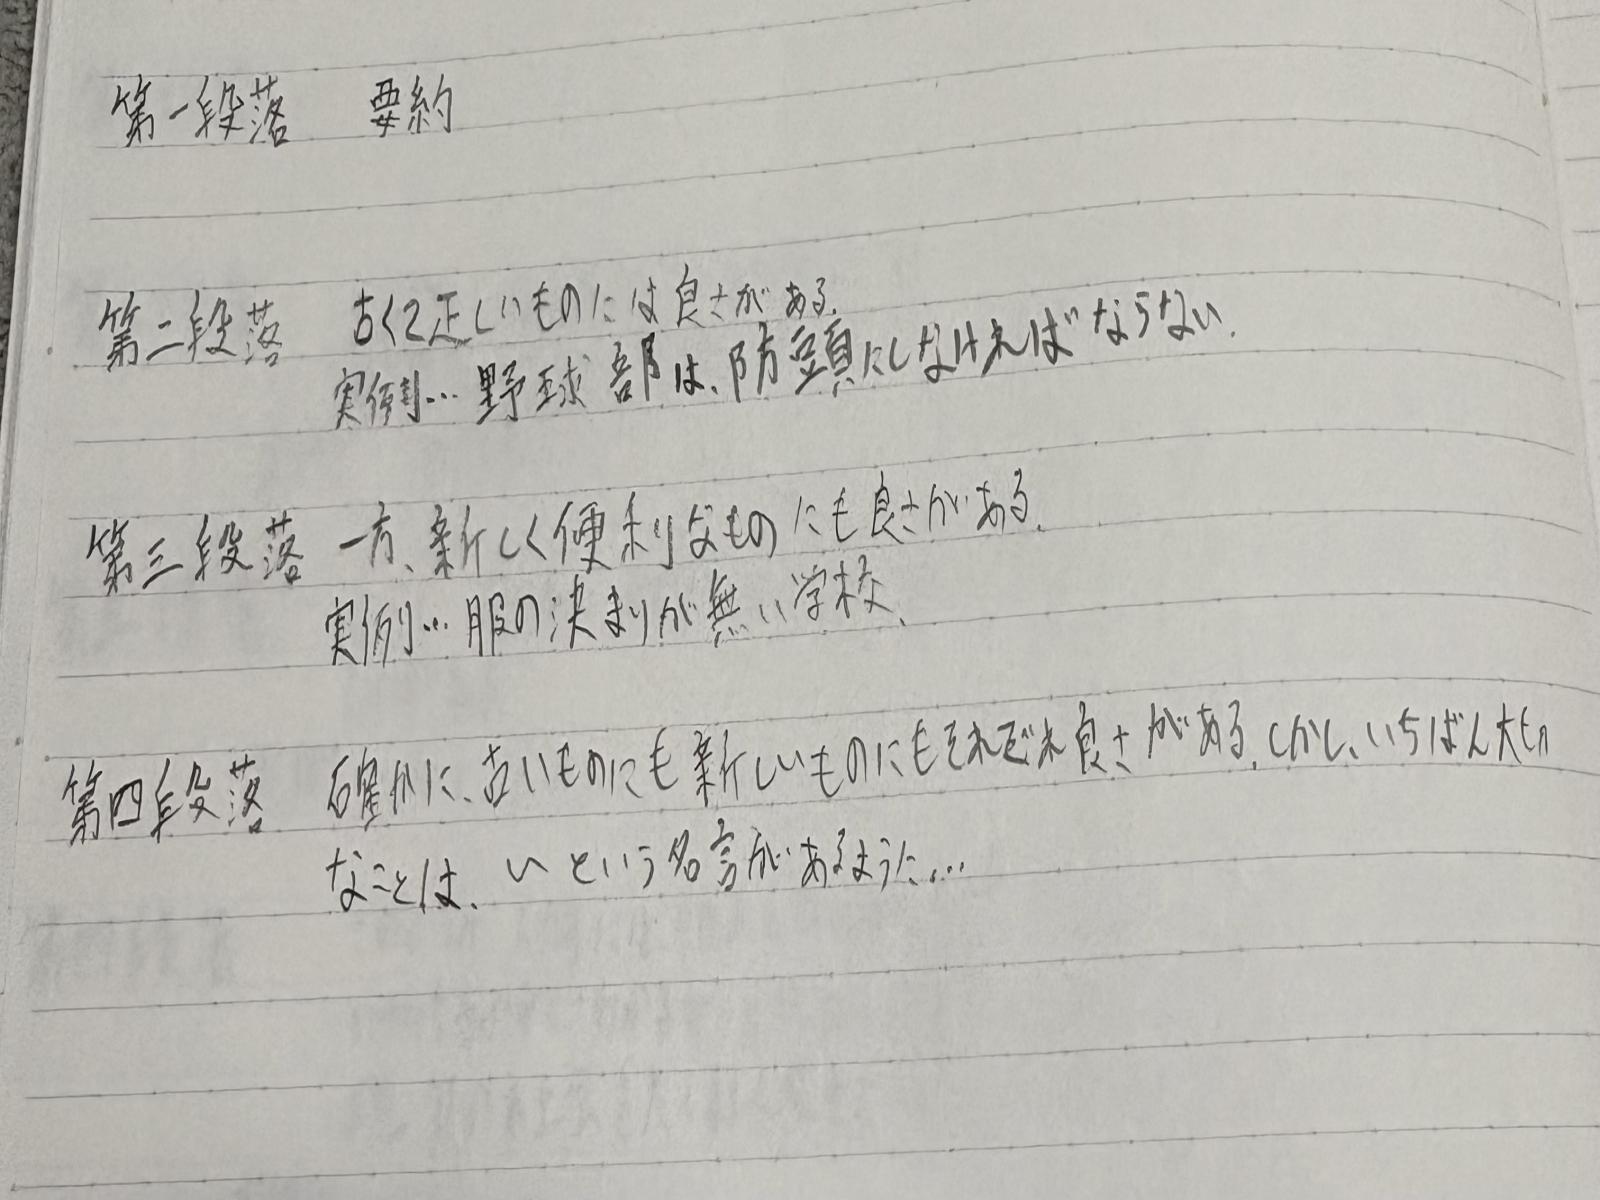 第一段落 要約
第二段落 古くて正しいものには良さがある。
実例…野球部は、防頭にしなければならない。
第三段落 一方、新しく便利なものにも良さがある。
実例…服の決まりが無い学校、
第四段落 確かに、古いものにも新しいものにもそれぞれ良さがある。しかし、いちばん大切
なことは、いという名言があるように…